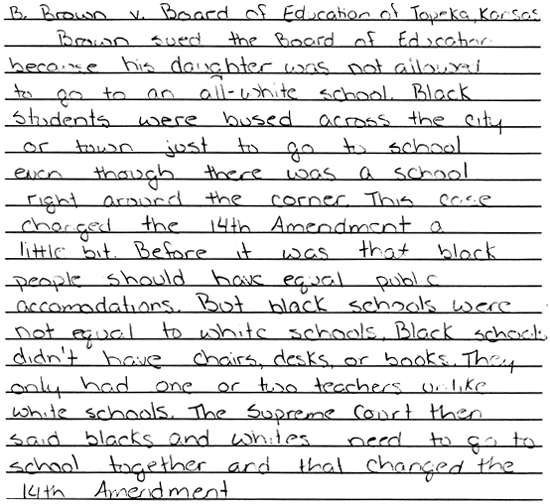 B. Brown v. Board of Education of Topeka, Kansas
Brown sued the Board of Education
because his daughter was not allowed
to go to an all-white school. Black
students were bused across the city
or town just to go to school
even though there was a school
right around the corner. This case
changed the 14th Amendment a
little bit. Before it was that black
people should have equal public
accomodations. But black schools were
not equal to white schools. Black schools
didn't have chairs, desks, or books. They
only had one or two teachers unlike
white schools. The Supreme Court then
said blacks and whites need to go to
school together and that changed the
14th Amendment